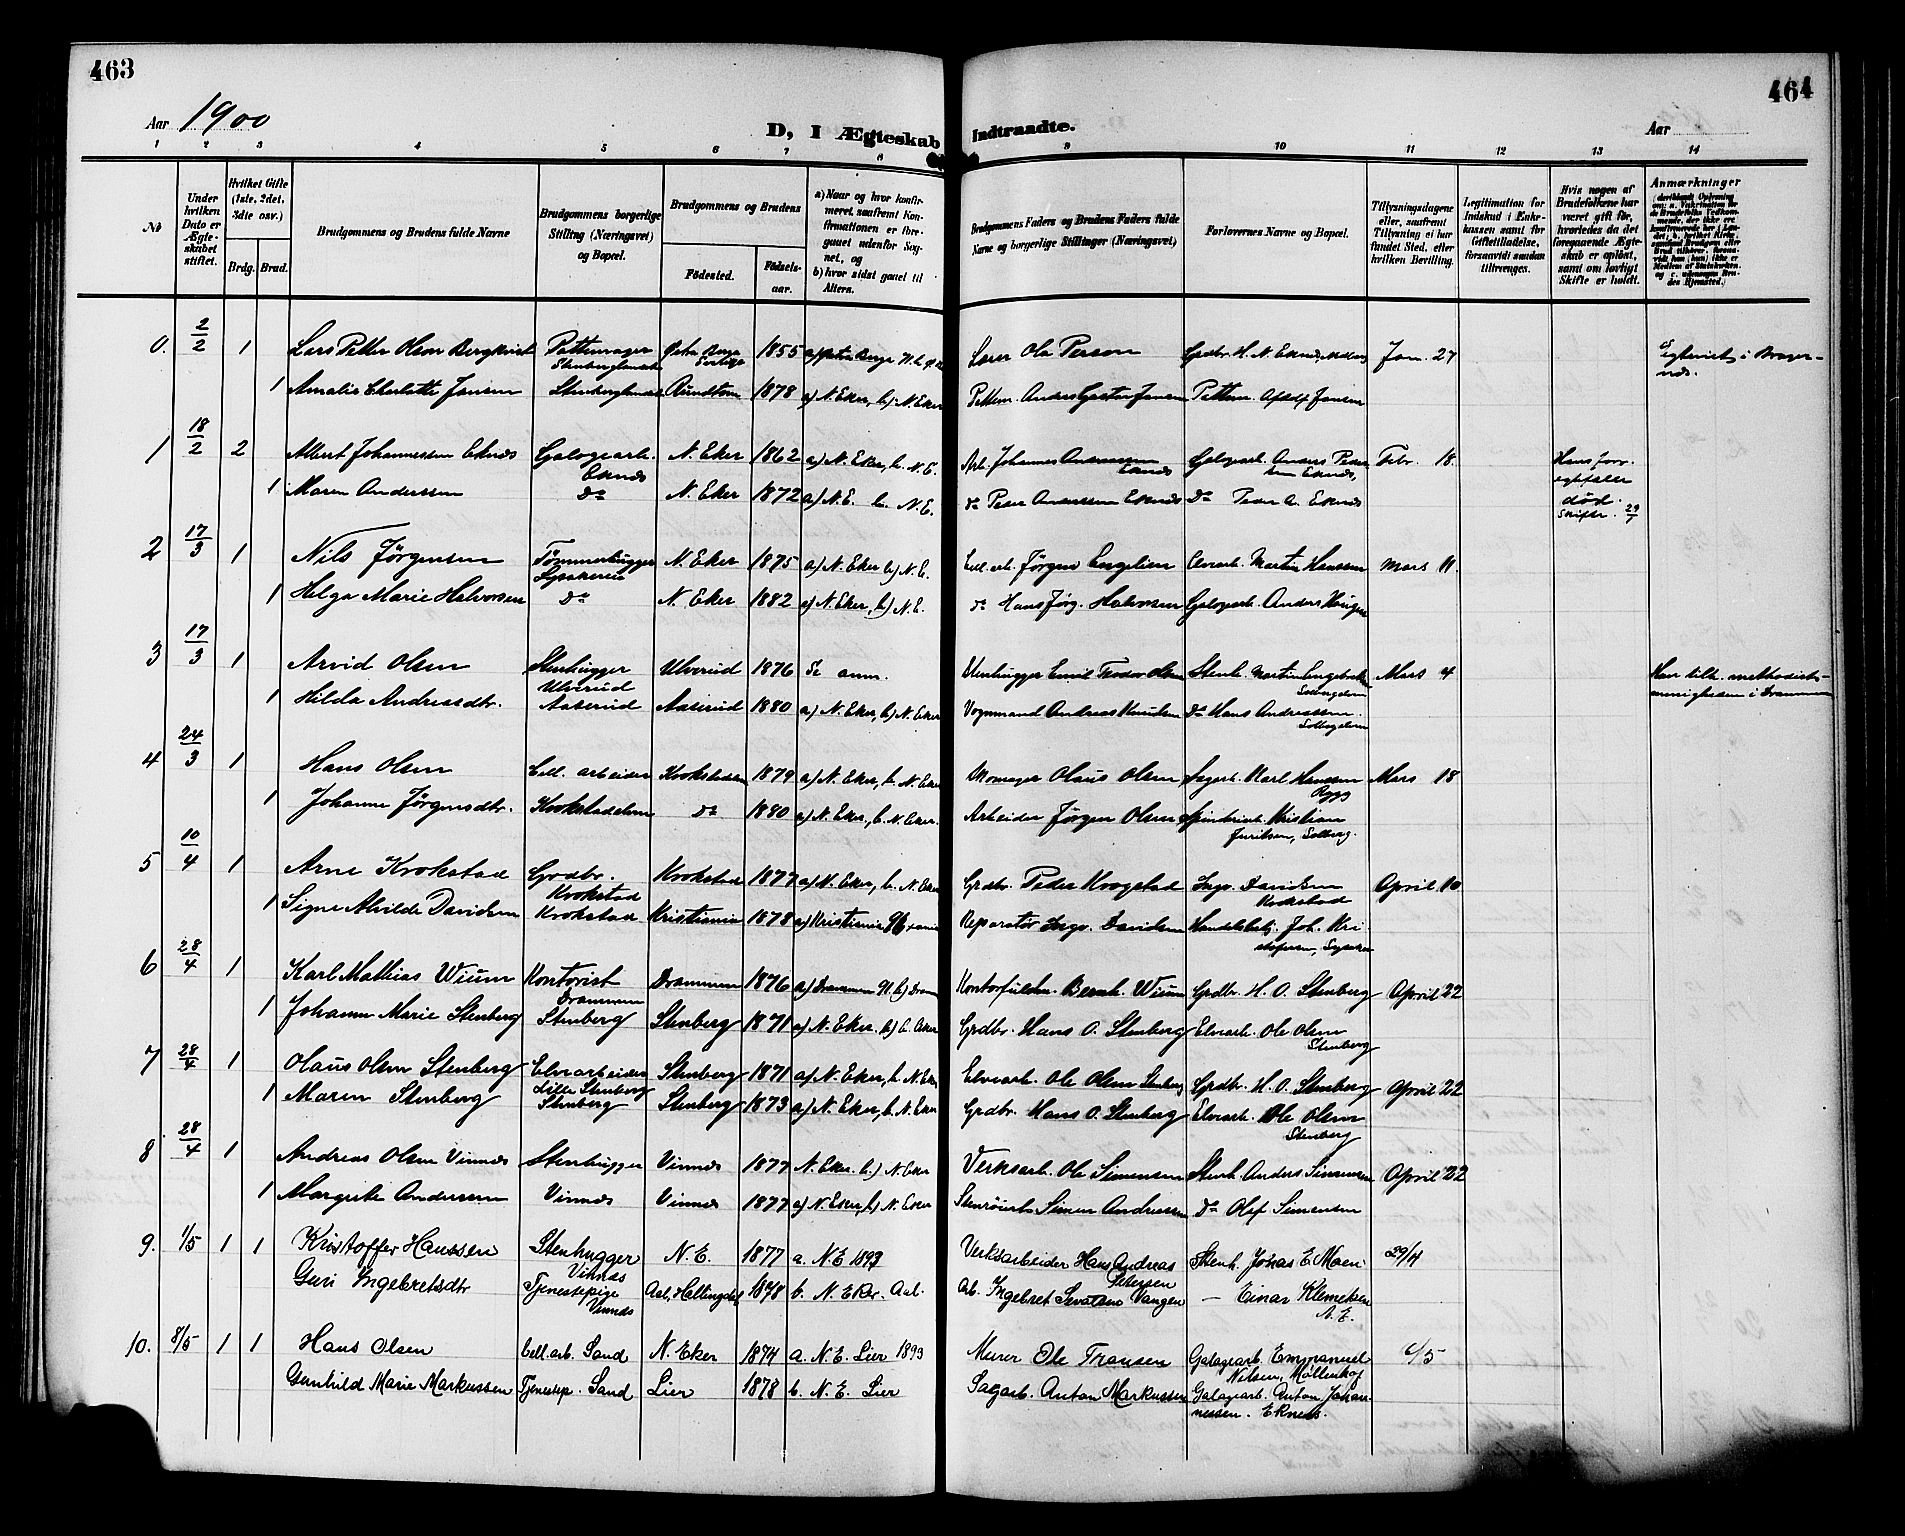 463
464
Aar 1900
D, I Ægteskab Indtraadte.
Aar
1 2 3 4 5 6 7 8 9 10 11 12 13 14
No
Under hvilken Dato er Ægteskabet stiftet.
Hvilket Gifte (1ste, 2det, 3die osv.)
Brdg. Brud.
Brudgommens og Brudens fulde Navne
Brudgommens borgerlige Stilling (Næringsvei) og Bopæl.
Brudgommens og Brudens
Fødested. Fødsels-aar.
a) Naar og hvor konfirmeret, saafremt Konfirmationen er foregaaet udenfor Sognet, og
b) hvor sidst gaaet til Alters.
Brudgommens Faders og Brudens Faders fulde Navne og borgerlige Stillinger (Næringsvei)
Forlovernes Navne og Bopæl.
Tillysningsdagene eller, saafremt Tillysning ei har fundet Sted, efter hvilken Bevilling.
Legitimation for Indskud i Enkekassen samt for Giftetilladelse, forsaavidt saadan tiltrænges.
Hvis nogen af Brudefolkene har været gift før, hvorledes da det foregaaende Ægteskab er opløst, samt om lovligt Skifte er holdt.
Anmærkninger
0. 2/2 1 Lars Petter Olsen Bergkvist 1855 Ola Person Jan. 27
1 Amalie Charlotte Jansen 1878 a) N. Eker, b) N. Eker Pettem. Adolf Jansen
1 18/2 2 Albert Johannessen Eknes Galogearb. Eknes N. Eker 1862 a) N. Eker, b. N. E. Arb. Johannes Eknes Galogearb. Anders Pedersen Eknes, Febr. 18. Hans forr. død. Skifte 29/7
1 Maren Anderssen do N. Eker 1872 a) N. E. b. N. E. do Peder Anderssen Eknes do Peder A. Eknes
2 17/3 1 Nils Jørgensen Tømmerhugger N. Eker 1875 a) N. Eker b) N. E. Jørgen Engelien Elvearb. Martin Hanssen Mars 11.
1 Helga Marie Halvorsen do N. Eker 1882 a) N. Eker, b) N. E. do Hans Jørg. Halvorsen Galogearb. Anders Haugen
3 17/3 1 Arvid Olsen Stenhugger Ulverud Ulverud 1876 Se anm. Stenhugger Emil Teodor Olsen Stenh. Martin Mars 4 Han tilh. methodistmenigheden i Drammen
1 Hilda Andreasdtr. Aaserud Aaserud 1880 a) N. Eker, b) N. Eker Vognmand Andreas Knudsen do Hans Andreassen
4 24/3 1 Hans Olsen Cell. arbeider Krokstadelven 1879 a) N. Eker, b. N. Eker Skomager Olaus Olsen Sagarb. Karl Hanssen Rygg Mars 18
1 Johanne Jørgensdtr. Krokstadelven do 1880 a) N. Eker, b. N. Eker. Arbeider Jørgen Olsen Kristian Solberg.
5 10/4 1 Arne Krokstad Grdbr. Krokstad Krokstad 1877 a) N. Eker, b. N. Eker Grdbr. Peder Krogstad Ingv. Davidsen Krokstad April 10
1 Signe Alvilde Davidsen Krokstad Kristiania 1878 a) Kristiania Reparatør Ingv. Davidsen Handelsbetj. Joh. Kristofersen,
6 28/4 1 Karl Mathias Wium Kontorist Drammen Drammen 1876 a) Drammen Kontorfuldm. Bernh. Wium Grdbr. H. O. Stenberg April 22
1 Johanne Marie Stenberg Stenberg Stenberg 1871 a) N. Eker. Grdbr. Hans O. Stenberg Elvearb. Ole Olsen Stenberg
7 28/4 1 Olaus Olsen Stenberg Elvearbeider Lille Stenberg Stenberg 1871 a) N. Eker, b. N. Eker Elvearb. Ole Olsen Stenberg Grdbr. H. O. Stenberg April 22
1 Maren Stenberg Stenberg Stenberg 1873 a) N. Eker, b. N. Eker Grdbr. Hans O. Stenberg Elvearb. Ole Olsen Stenberg
8 28/4 1 Andreas Olsen Vinnes Stenhugger Vinnes 1877 N. Eker. b.) N. Eker Verksarb. Ole Simensen Stenh. Anders Simensen April 22
1 Margrete Anderssen Vinnes Vinnes 1877 a) N. Eker, b) N. Eker Simen Anderssen do Olef Simensen
9. 1/5 1 1 Kristoffer Hanssen Stenhugger Vinnes N. E. 1877 a. N E 1893 Verksarbeider Hans Andreas Petersen Stenh. Johas E. Moen 29/4
Guri Ingebretsdtr Tjenestepige Vinnes Aal, Hallingdal 1878 b. N. Eker. Aal. Arb. Ingebret Sevatsen Vangen — Einar Klemetsen N. E.
10. 8/5 1 1 Hans Olsen Cell. arb. Sand N. Eker 1874 a. N. E. Lier 1893 Murer Ole Fransen Galagearb. Emmanuel Nilsen, Møllenhof 6/5
Gunhild Marie Markussen Tjenestep. Sand Lier 1878 b. N. E. Lier Sagarb. Anton Markussen Galagearb. Anton Johannessen. Eknes.